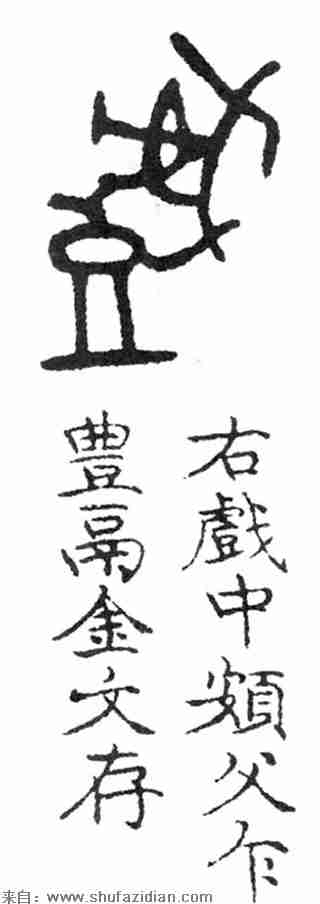 戲
右戲中父乍
豊鬲金文存
来自：www.shufazidian.com